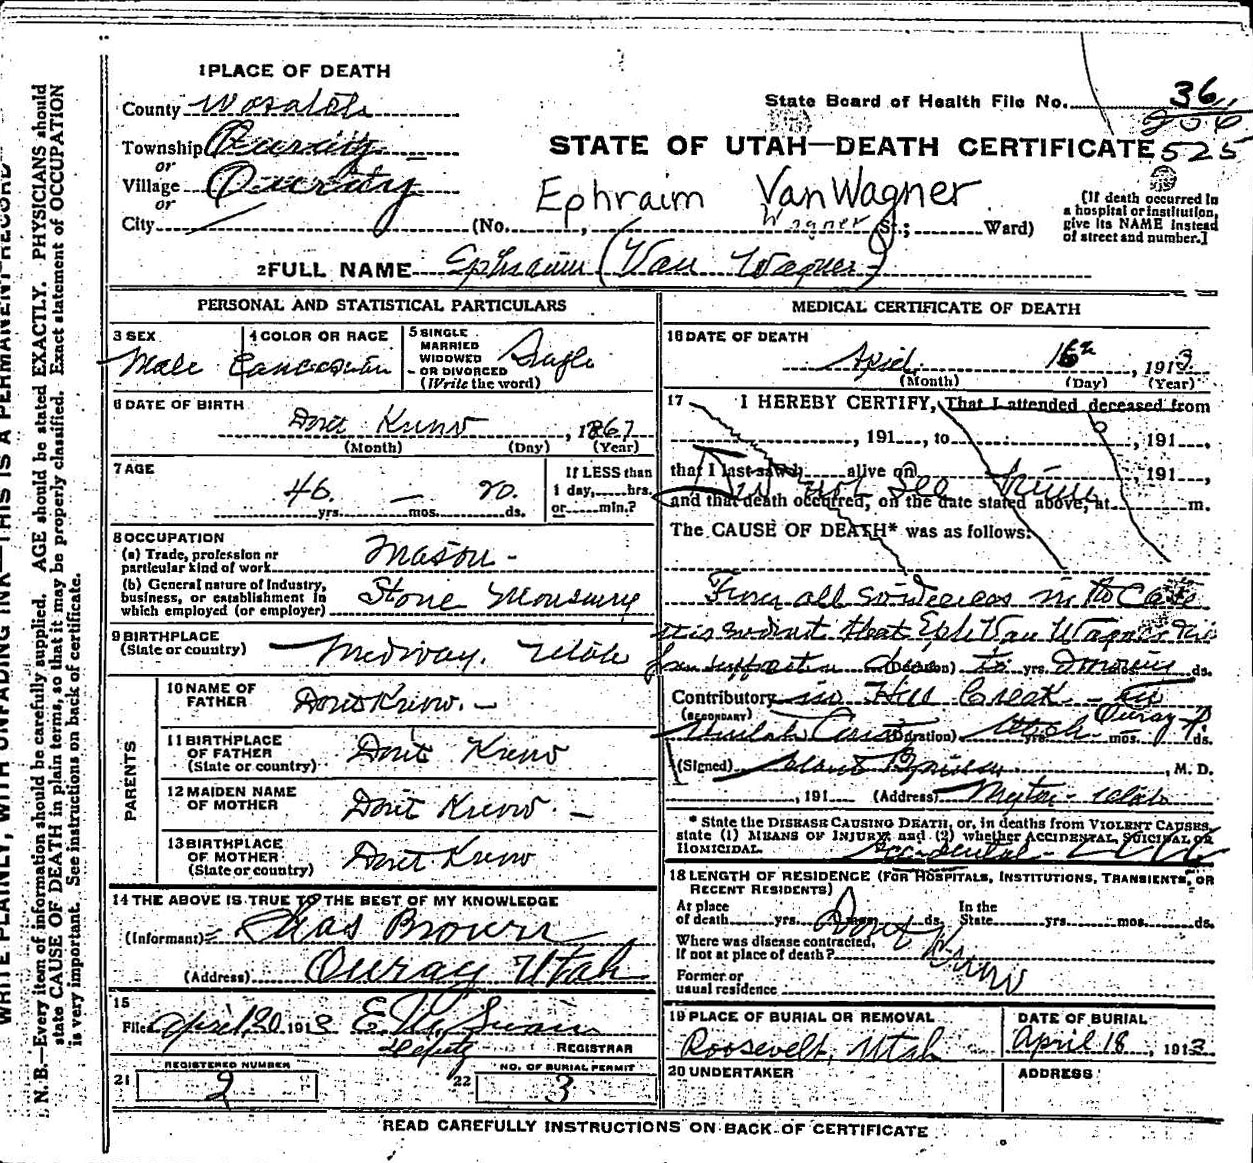 1 PLACE OF DEATH
County Wasatch
State Board of Health File No. 36
206
Township Ouray
STATE OF UTAH—DEATH CERTIFICATE 525
or
Village Ouray
or
Ephraim VanWagner
[If death occurred in a hospital or institution, give its NAME instead of street and number.]
City (No. Wagner St.; Ward)
2 FULL NAME Ephraim (Van Wagner)
PERSONAL AND STATISTICAL PARTICULARS
3 SEX
Male
4 COLOR OR RACE
Caucasian
5 SINGLE MARRIED WIDOWED OR DIVORCED (Write the word)
Single
6 DATE OF BIRTH
Dont Know, 1867
(Month) (Day) (Year)
7 AGE
46 yrs. — mos. 20 ds.
If LESS than 1 day, hrs. or min.?
8 OCCUPATION
(a) Trade, profession or particular kind of work Mason -
(b) General nature of industry, business, or establishment in which employed (or employer) Stone
9 BIRTHPLACE
(State or country) Midway, Utah
PARENTS
10 NAME OF FATHER Dont Know. -
11 BIRTHPLACE OF FATHER (State or country) Dont Know
12 MAIDEN NAME OF MOTHER Dont Know. -
13 BIRTHPLACE OF MOTHER (State or country) Dont Know
14 THE ABOVE IS TRUE TO THE BEST OF MY KNOWLEDGE
(Informant) Chas Brown
(Address) Ouray Utah
15
Filed April 20 1913 Swain
Deputy REGISTRAR
21 REGISTERED NUMBER 2
22 NO. OF BURIAL PERMIT 3
MEDICAL CERTIFICATE OF DEATH
16 DATE OF DEATH
April 16, 1913
(Month) (Day) (Year)
17 I HEREBY CERTIFY, That I attended deceased from
, 191 , to , 191 ,
that I last saw h alive on , 191 ,
Did not See him
and that death occurred, on the date stated above, at m.
The CAUSE OF DEATH* was as follows:
From all in the Case
it is that Eph Van Wagner
(Duration) yrs. mos. ds.
Contributory in Creek -
(SECONDARY)
Utah Ouray
(Duration) yrs. mos. ds.
(Signed) , M. D.
, 191 (Address) Myton - Utah
* State the DISEASE CAUSING DEATH, or, in deaths from VIOLENT CAUSES, state (1) MEANS OF INJURY; and (2) whether ACCIDENTAL, SUICIDAL OR HOMICIDAL.
Accidental -
18 LENGTH OF RESIDENCE (FOR HOSPITALS, INSTITUTIONS, TRANSIENTS, OR RECENT RESIDENTS)
At place of death yrs. mos. ds. In the State yrs. mos. ds.
Dont Know
Where was disease contracted, If not at place of death?
Former or usual residence
19 PLACE OF BURIAL OR REMOVAL
Roosevelt, Utah
DATE OF BURIAL
April 18, 1913
20 UNDERTAKER
ADDRESS
READ CAREFULLY INSTRUCTIONS ON BACK OF CERTIFICATE
WRITE PLAINLY, WITH UNFADING INK—THIS IS A PERMANENT RECORD
N. B.—Every item of information should be carefully supplied. AGE should be stated EXACTLY. PHYSICIANS should
state CAUSE OF DEATH in plain terms, so that it may be properly classified. Exact statement of OCCUPATION
is very important. See instructions on back of certificate.